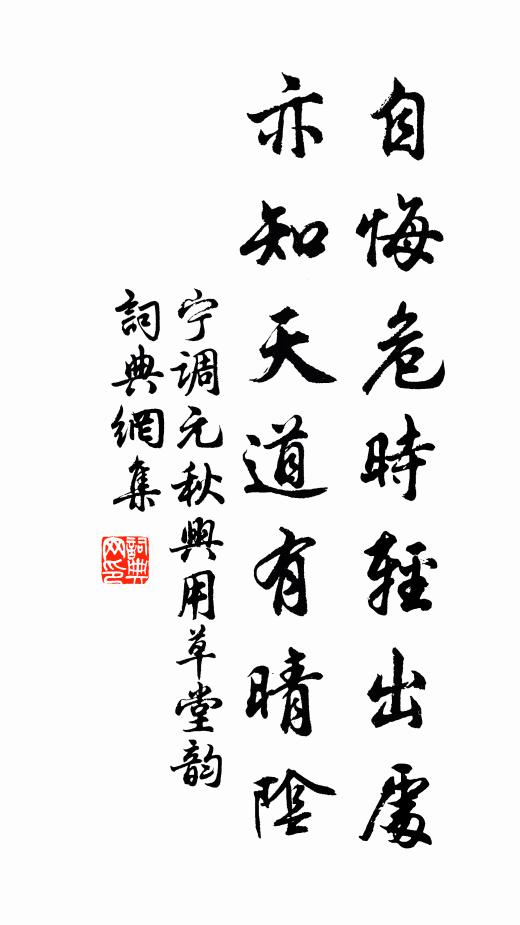 自悔危時輕出處
亦知天道有晴陰
宁调元秋興用草堂韵
詞典網集
詞典網印